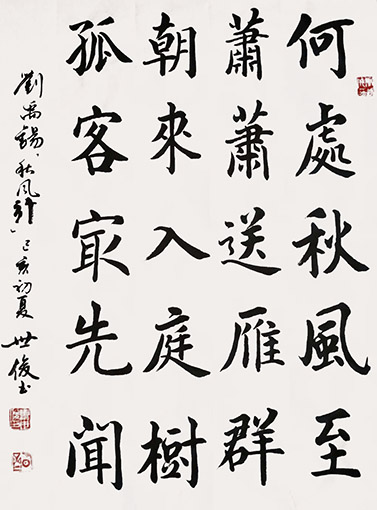 何處秋風至
蕭蕭送雁群
朝來入庭樹
孤客㝡先聞
劉禹錫、秋风引」己亥初夏 世俊书